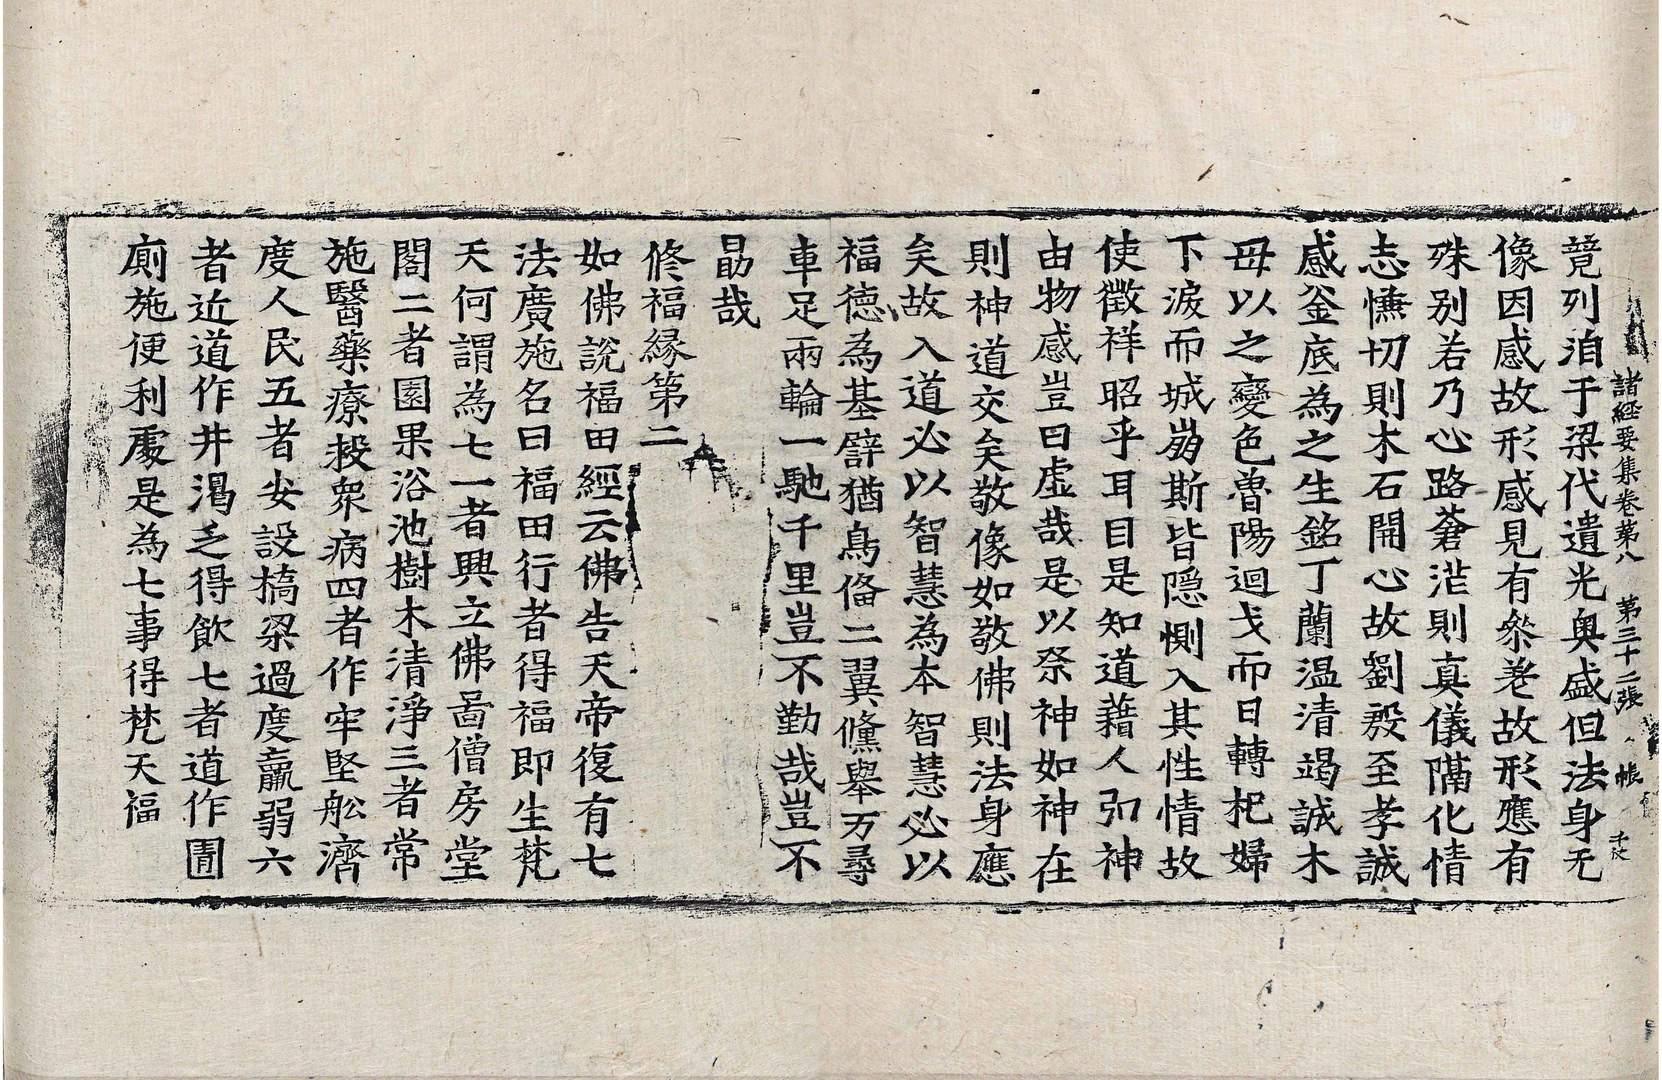 諸經要集卷第八　第三十二張　帳
竟列洎于梁代遺光奥盛但法身无
像因感故形感見有叅差故形應有
殊別若乃心路蒼茫則真儀隔化情
志慊切則木石開心故劉殷至孝誠
感釜庾為之生銘丁蘭温清竭誠木
母以之變色魯陽迴戈而日轉杞婦
下淚而城崩斯皆隠惻入其性情故
使徵祥昭乎耳目是知道藉人弘神
由物感豈曰虛哉是以祭神如神在
則神道交矣敬像如敬佛則法身應
矣故入道必以智慧為本智慧必以
福德為基譬猶鳥俻二翼儵舉万尋
車足兩輪一馳千里豈不勤哉豈不
勗哉
修福緣第二
如佛說福田經云佛告天帝復有七
法廣施名曰福田行者得福即生梵
天何謂為七一者興立佛啚僧房堂
閣二者園果浴池樹木清淨三者常
施醫藥療救衆病四者作牢堅舩濟
度人民五者安設橋梁過度羸弱六
者近道作井渴乏得飲七者道作圊
廁施便利處是為七事得梵天福